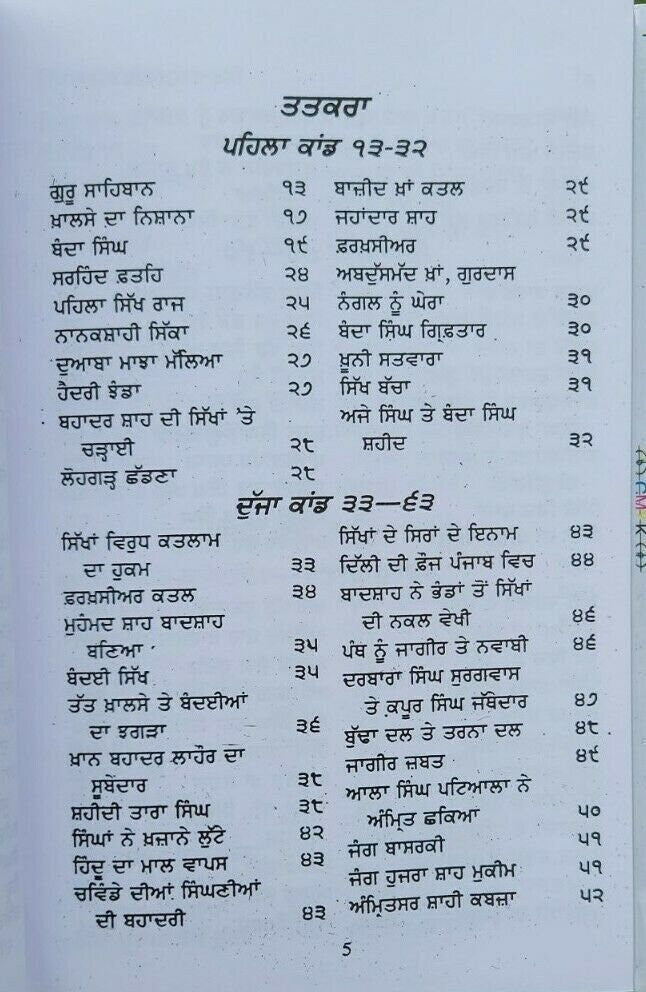 ਤਤਕਰਾ
ਪਹਿਲਾ ਕਾਂਡ ੧੩-੩੨
ਗੁਰੂ ਸਾਹਿਬਾਨ ੧੩
ਖ਼ਾਲਸੇ ਦਾ ਨਿਸ਼ਾਨਾ ੧੭
ਬੰਦਾ ਸਿੰਘ ੧੯
ਸਰਹਿੰਦ ਫ਼ਤਹਿ ੨੪
ਪਹਿਲਾ ਸਿੱਖ ਰਾਜ ੨੫
ਨਾਨਕਸ਼ਾਹੀ ਸਿੱਕਾ ੨੬
ਦੁਆਬਾ ਮਾਝਾ ਮੱਲਿਆ ੨੭
ਹੈਦਰੀ ਝੰਡਾ ੨੭
ਬਹਾਦਰ ਸ਼ਾਹ ਦੀ ਸਿੱਖਾਂ 'ਤੇ
ਚੜ੍ਹਾਈ ੨੮
ਲੋਹਗੜ੍ਹ ਛੱਡਣਾ ੨੮
ਬਾਜ਼ੀਦ ਖ਼ਾਂ ਕਤਲ ੨੯
ਜਹਾਂਦਾਰ ਸ਼ਾਹ ੨੯
ਫ਼ਰਖ਼ਸੀਅਰ ੨੯
ਅਬਦੁੱਸਮੱਦ ਖ਼ਾਂ, ਗੁਰਦਾਸ
ਨੰਗਲ ਨੂੰ ਘੇਰਾ ੩੦
ਬੰਦਾ ਸਿੰਘ ਗ੍ਰਿਫ਼ਤਾਰ ੩੦
ਖ਼ੂਨੀ ਸਤਵਾਰਾ ੩੧
ਸਿੱਖ ਬੱਚਾ ੩੧
ਅਜੇ ਸਿੰਘ ਤੇ ਬੰਦਾ ਸਿੰਘ
ਸ਼ਹੀਦ ੩੨
ਦੂੱਜਾ ਕਾਂਡ ੩੩—੬੩
ਸਿੱਖਾਂ ਵਿਰੁਧ ਕਤਲਾਮ
ਦਾ ਹੁਕਮ ੩੩
ਫ਼ਰਖ਼ਸੀਅਰ ਕਤਲ ੩੪
ਮੁਹੰਮਦ ਸ਼ਾਹ ਬਾਦਸ਼ਾਹ
ਬਣਿਆ ੩੫
ਬੰਦਈ ਸਿੱਖ ੩੫
ਤੱਤ ਖ਼ਾਲਸੇ ਤੇ ਬੰਦਈਆਂ
ਦਾ ਝਗੜਾ ੩੬
ਖ਼ਾਨ ਬਹਾਦਰ ਲਾਹੌਰ ਦਾ
ਸੂਬੇਦਾਰ ੩੮
ਸ਼ਹੀਦੀ ਤਾਰਾ ਸਿੰਘ ੩੮
ਸਿੰਘਾਂ ਨੇ ਖ਼ਜ਼ਾਨੇ ਲੁੱਟੇ ੪੨
ਹਿੰਦੂ ਦਾ ਮਾਲ ਵਾਪਸ ੪੩
ਚਵਿੰਡੇ ਦੀਆਂ ਸਿੰਘਣੀਆਂ
ਦੀ ਬਹਾਦਰੀ ੪੩
ਸਿੱਖਾਂ ਦੇ ਸਿਰਾਂ ਦੇ ਇਨਾਮ ੪੩
ਦਿੱਲੀ ਦੀ ਫ਼ੌਜ ਪੰਜਾਬ ਵਿਚ ੪੪
ਬਾਦਸ਼ਾਹ ਨੇ ਭੰਡਾਂ ਤੋਂ ਸਿੱਖਾਂ
ਦੀ ਨਕਲ ਵੇਖੀ ੪੬
ਪੰਥ ਨੂੰ ਜਾਗੀਰ ਤੇ ਨਵਾਬੀ ੪੬
ਦਰਬਾਰਾ ਸਿੰਘ ਸੁਰਗਵਾਸ
ਤੇ ਕਪੂਰ ਸਿੰਘ ਜੱਥੇਦਾਰ ੪੭
ਬੁੱਢਾ ਦਲ ਤੇ ਤਰਨਾ ਦਲ ੪੮
ਜਾਗੀਰ ਜ਼ਬਤ ੪੯
ਆਲਾ ਸਿੰਘ ਪਟਿਆਲਾ ਨੇ
ਅੰਮ੍ਰਿਤ ਛਕਿਆਂ ੫੦
ਜੰਗ ਬਾਸਰਕੀ ੫੧
ਜੰਗ ਹੁਜਰਾ ਸ਼ਾਹ ਮੁਕੀਮ ੫੧
ਅੰਮ੍ਰਿਤਸਰ ਸ਼ਾਹੀ ਕਬਜ਼ਾ ੫੨
5